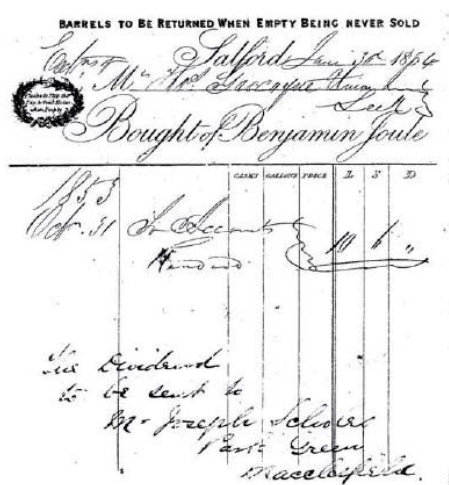 BARRELS TO BE RETURNED WHEN EMPTY BEING NEVER SOLD
Salford Jany 30th 1854
Mr Thos
Leek
Bought of Benjamin Joule
CASKS GALLONS PRICE L S D
1853
Oct. 31 To Accounts 10 6 "
The Dividend
to be sent to
Mr Joseph
Park Green
Macclesfield.